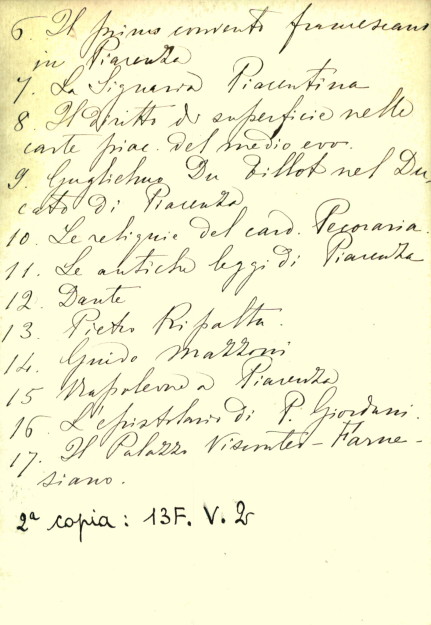 6. Il primo convento francescano
in Piacenza
7. La Signaria Piacentina
8. Il Diritto di superficie nelle
carte piac. del medio evo.
9. Guglielmo Du Tillot nel Du-
cato di Piacenza
10. Le reliquie del card. Pecoraria.
11. Le antiche leggi di Piacenza
12. Dante
13. Pietro Ripalta.
14. Guido Mazzoni
15 Napoleone a Piacenza
16 L'epistolario di P. Giordani.
17. Il Palazzo Visconteo-Farne-
siano.
2ª copia: 13F. V. 2